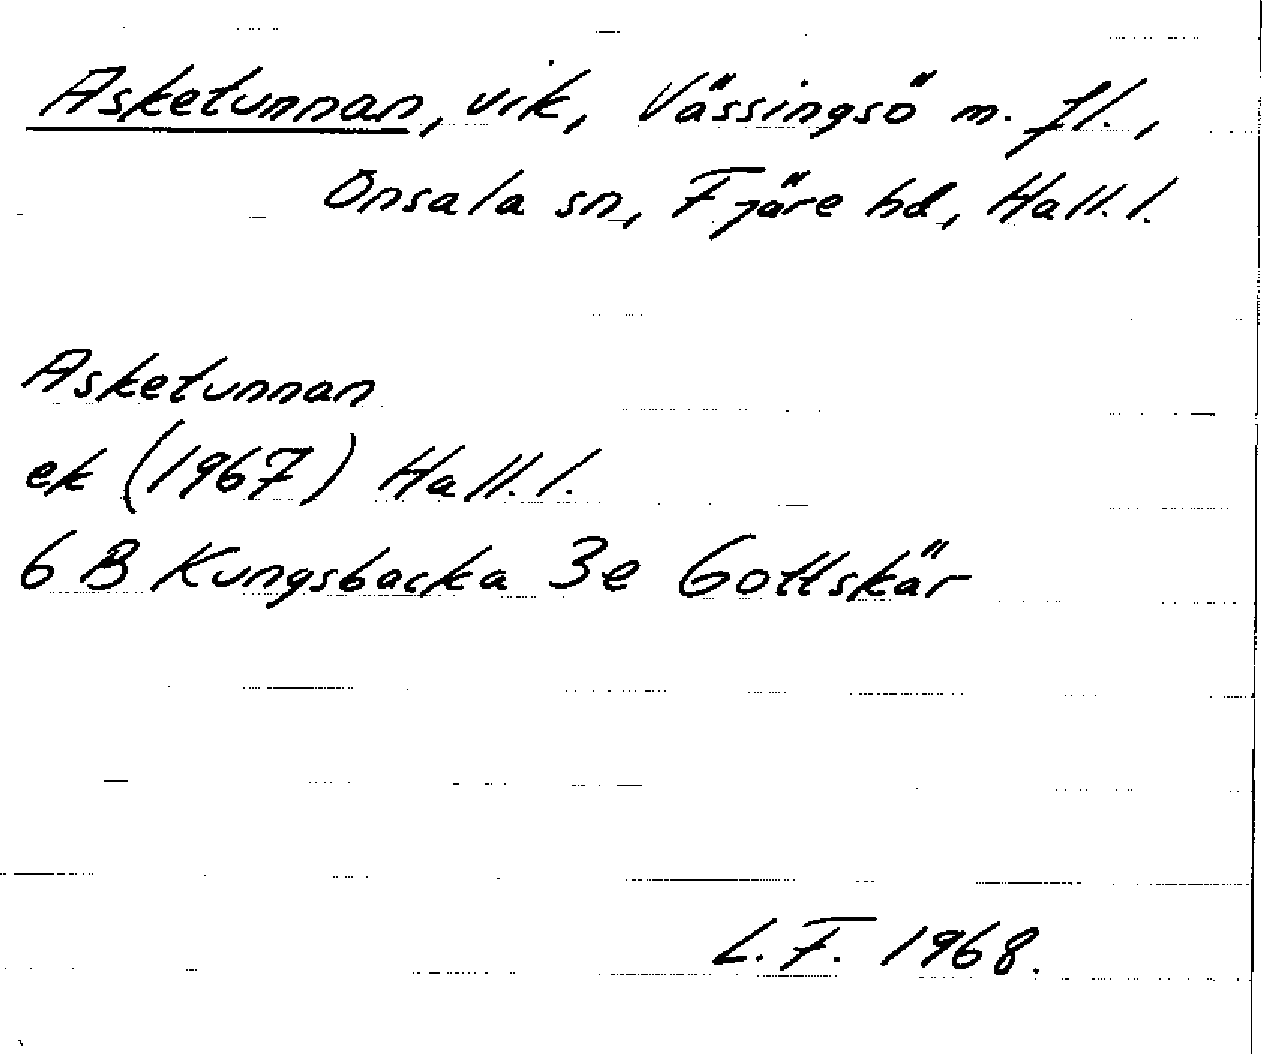 Asketunnan, vik, Vässingsö m. fl.,
Onsala sn, Fjäre hd, Hall. l.
Asketunnan
ek (1967) Hall. l.
6 B Kungsbacka 3e Gottskär
L. F. 1968.